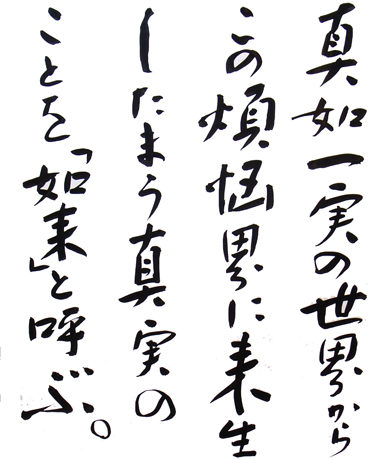 真如一実の世界から
この煩悩界に来生
したまう真実の
ことを「如来」と呼ぶ。